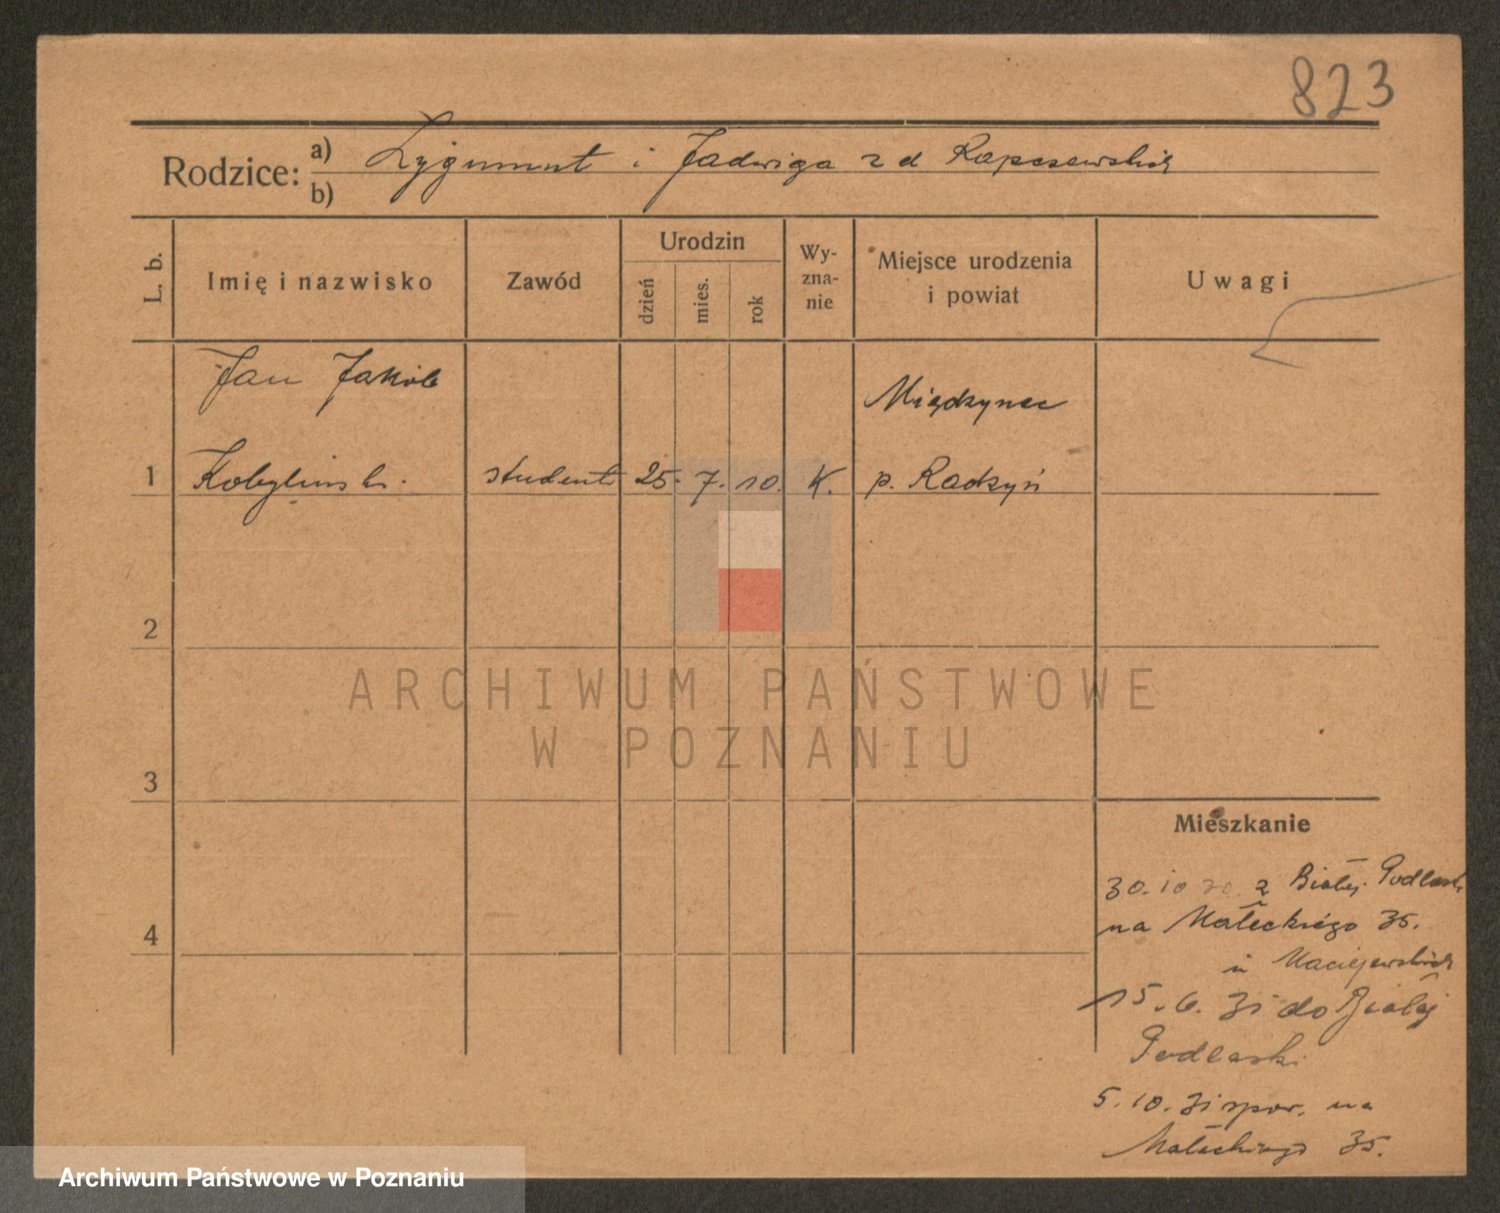 823
Rodzice: a) Zygmunt i Jadwiga z d
b)
L. b.
Imię i nazwisko
Zawód
Urodzin
dzień
mies.
rok
Wy-
zna-
nie
Miejsce urodzenia
i powiat
Uwagi
Jan Jakób
Międzyrzec
1 Kobyliński student 25. 7. 10. K. p. Radzyń
2
3
4
Mieszkanie
30.10 30. z Białej Podlask
na Małeckiego 35.
u Maciejewskich
15.6. 31 do Białej
Podlaski
5.10.31 spow. na
Małeckiego 35.
ARCHIWUM PAŃSTWOWE
W POZNANIU
Archiwum Państwowe w Poznaniu